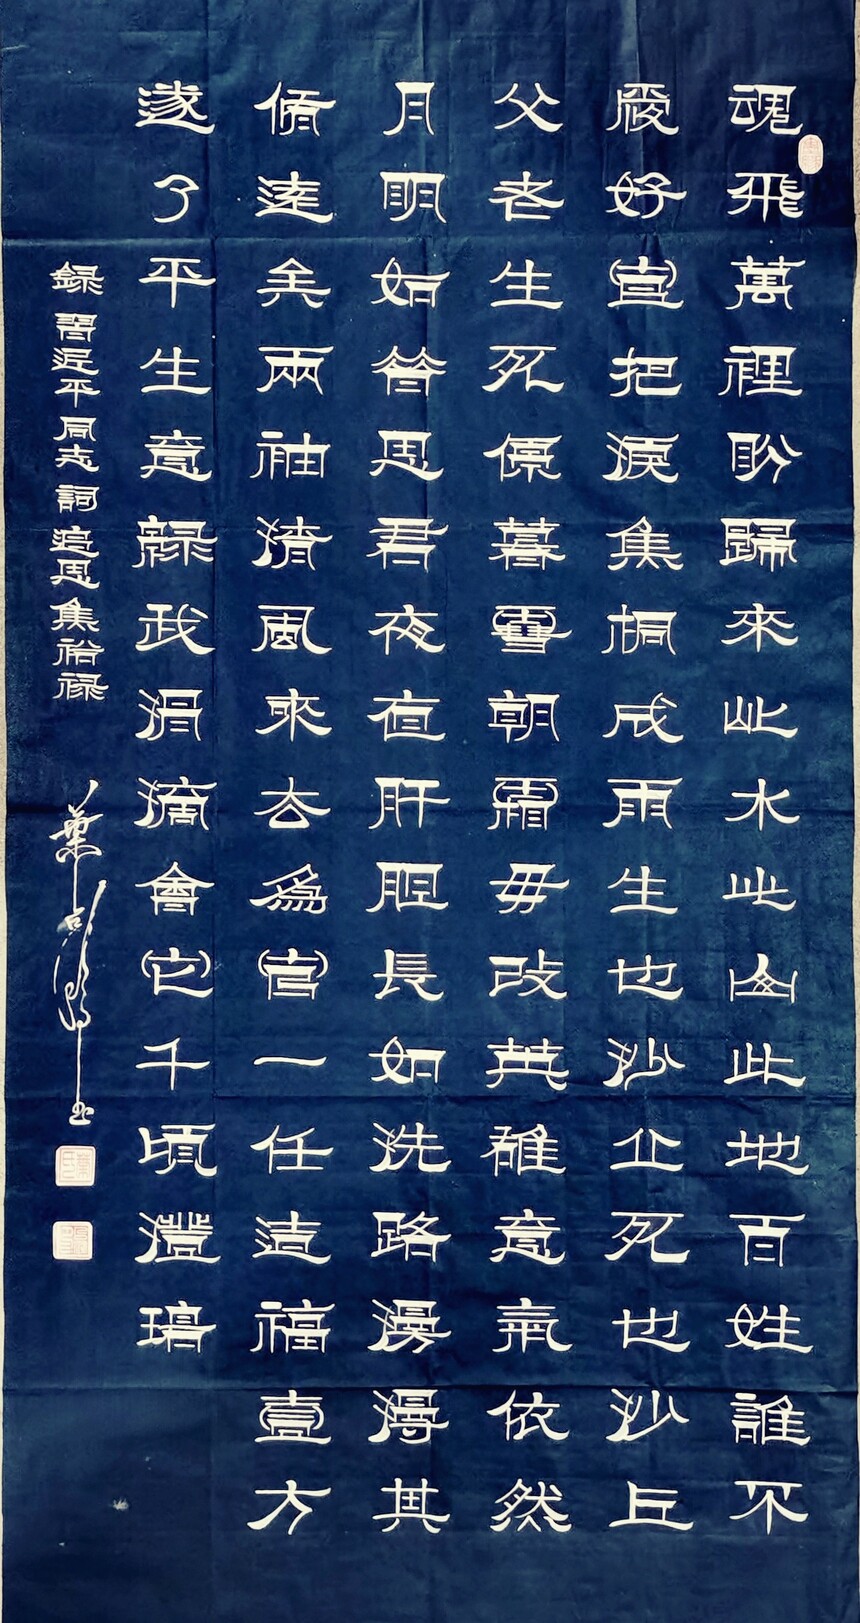 魂飛萬裡盼歸來此水此山此地百姓誰不
愛好官把淚焦桐成雨生也沙丘死也沙丘
父老生死係暮雪朝霜毋改英雄意氣依然
月明如昔思君夜亱肝胆長如洗路漫漫其
脩遠矣兩袖清風來去為官一任造福壹方
遂了平生意綠我涓滴會它千頃澄碧
録習近平同志詞追思焦裕禄
葉